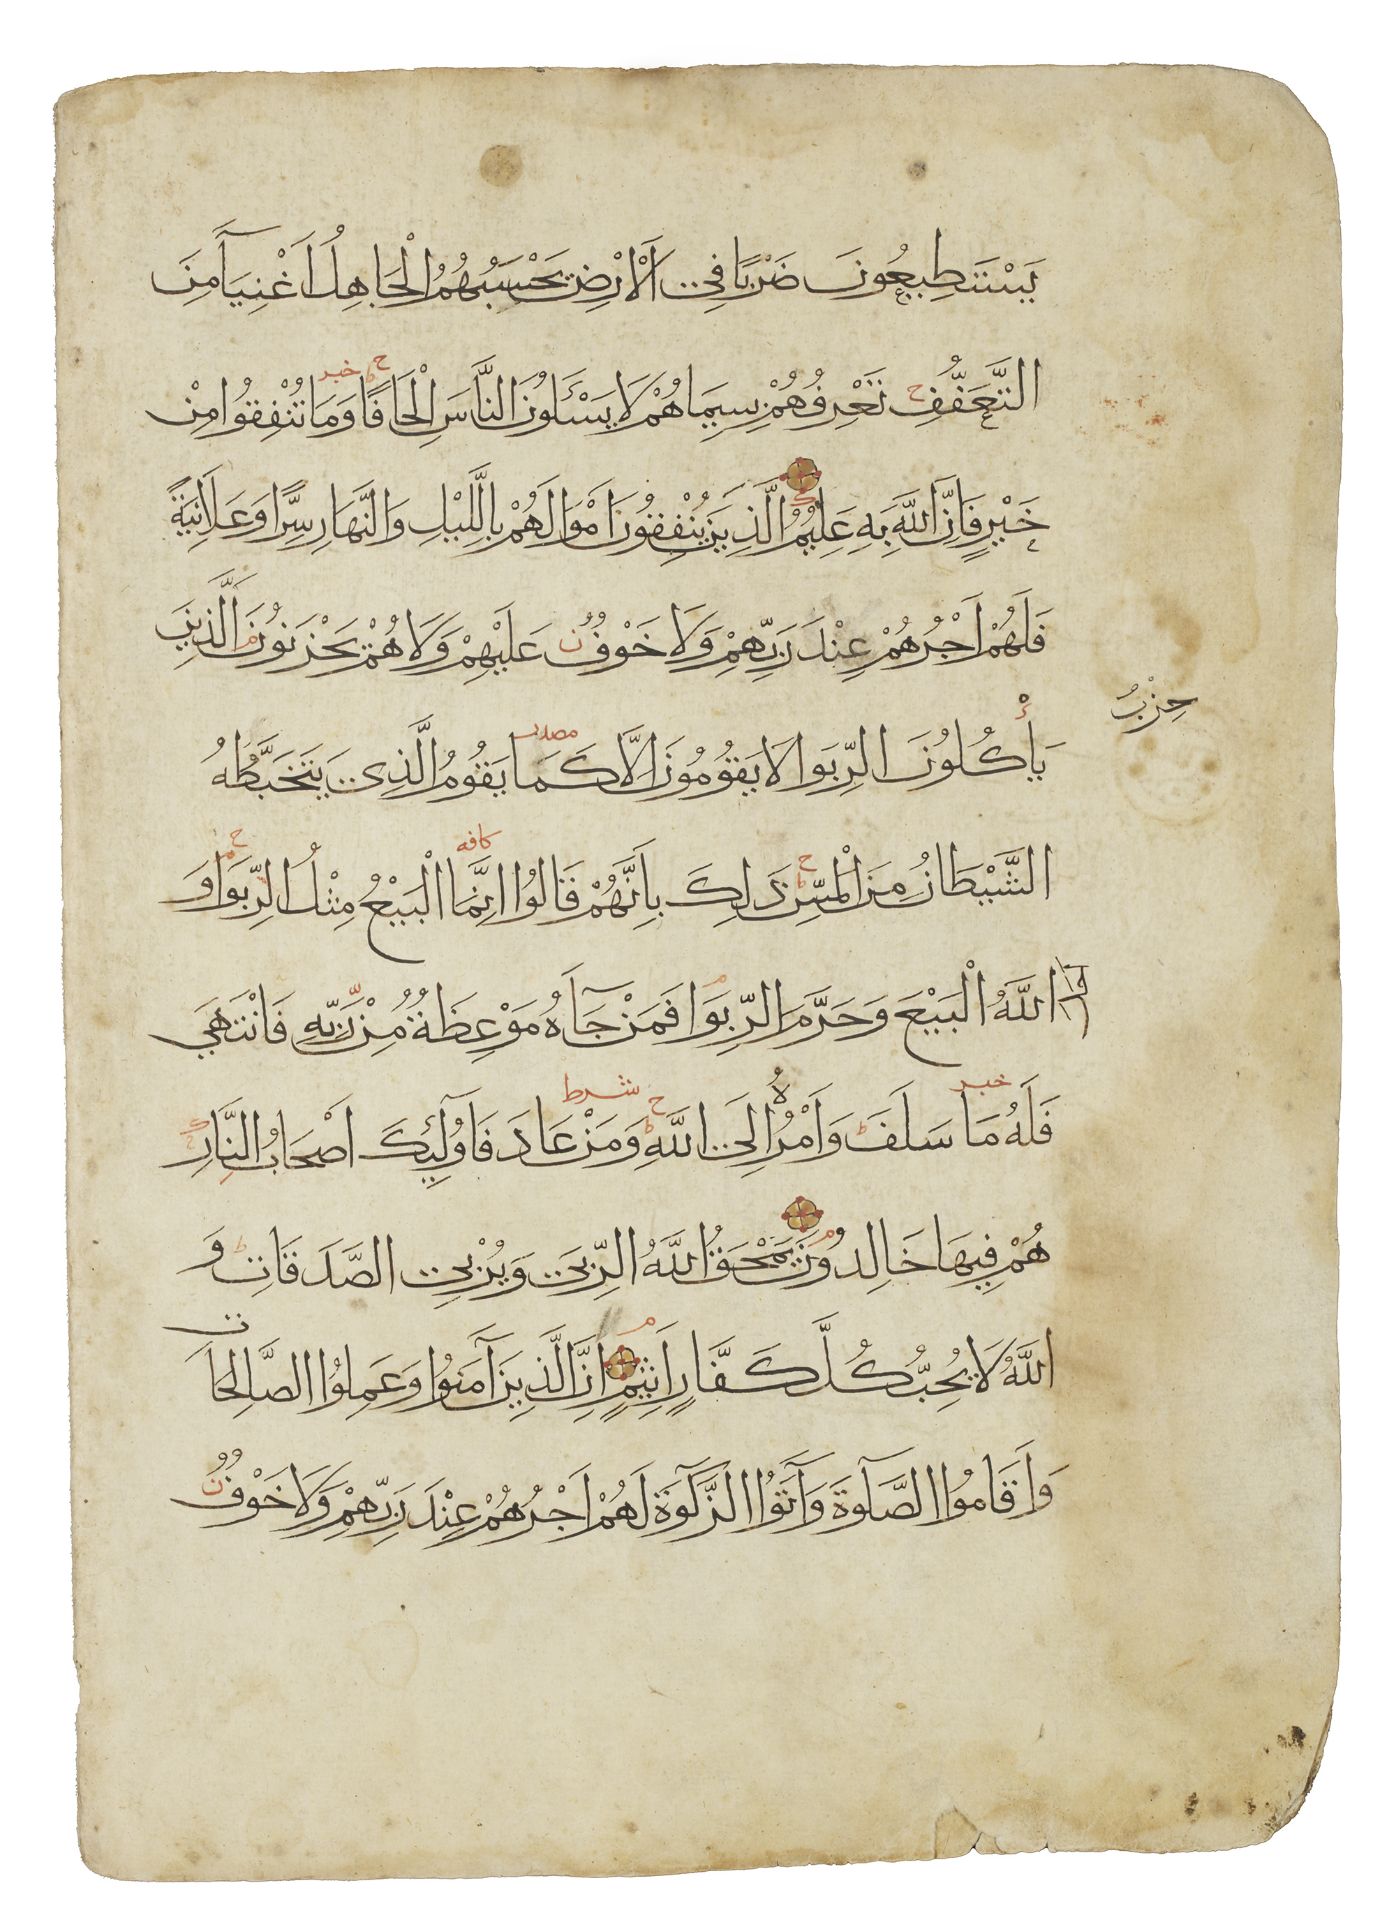 يَسْتَطِيعُونَ ضَرْبًا فِي الْاَرْضِ يَحْسَبُهُمُ الْجَاهِلُ اَغْنِيَآءَ مِنَ
ح خبر
التَّعَفُّفِ تَعْرِفُهُمْ بِسِيمَاهُمْ لَا يَسْئَلُونَ النَّاسَ اِلْحَافًا وَمَا تُنْفِقُوا مِنْ
خَيْرٍ فَاِنَّ اللَّهَ بِهِ عَلِيمٌ الَّذِينَ يُنْفِقُونَ اَمْوَالَهُمْ بِاللَّيْلِ وَالنَّهَارِ سِرًّا وَعَلَانِيَةً
فَلَهُمْ اَجْرُهُمْ عِنْدَ رَبِّهِمْ وَلَا خَوْفٌ عَلَيْهِمْ وَلَا هُمْ يَحْزَنُونَ الَّذِينَ
حِزْبٌ
مصدر
يَأْكُلُونَ الرِّبَوا لَا يَقُومُونَ اِلَّا كَمَا يَقُومُ الَّذِي يَتَخَبَّطُهُ
كافه
الشَّيْطَانُ مِنَ الْمَسِّ ذَلِكَ بِاَنَّهُمْ قَالُوا اِنَّمَا الْبَيْعُ مِثْلُ الرِّبَوا وَ
اَحَلَّ اللَّهُ الْبَيْعَ وَحَرَّمَ الرِّبَوا فَمَنْ جَآءَهُ مَوْعِظَةٌ مِنْ رَبِّهِ فَانْتَهَى
خبر شرط
فَلَهُ مَا سَلَفَ وَاَمْرُهُ اِلَى اللَّهِ وَمَنْ عَادَ فَاُولَٓئِكَ اَصْحَابُ النَّارِ
هُمْ فِيهَا خَالِدُونَ يَمْحَقُ اللَّهُ الرِّبَى وَيُرْبِي الصَّدَقَاتِ وَ
اللَّهُ لَا يُحِبُّ كُلَّ كَفَّارٍ اَثِيمٍ اِنَّ الَّذِينَ آمَنُوا وَعَمِلُوا الصَّالِحَاتِ
وَاَقَامُوا الصَّلَوةَ وَآتَوُا الزَّكَوةَ لَهُمْ اَجْرُهُمْ عِنْدَ رَبِّهِمْ وَلَا خَوْفٌ